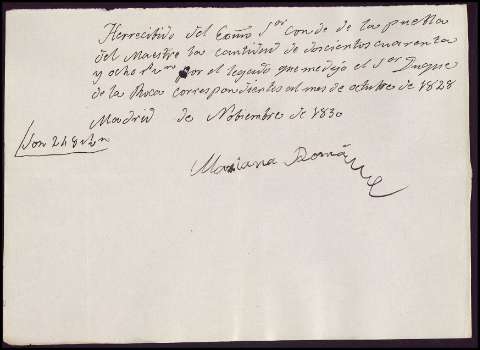 Herrecibido del Exmo Sor Conde de la puebla
del Maestre la cantidad de doscientos cuarenta
y ocho rs vn por el legado que me dejo el Sor Duque
de la Roca correspondientes al mes de octubre de 1828
Madrid de Nobiembre de 1830
Son 248 rs vn
Mariana Román